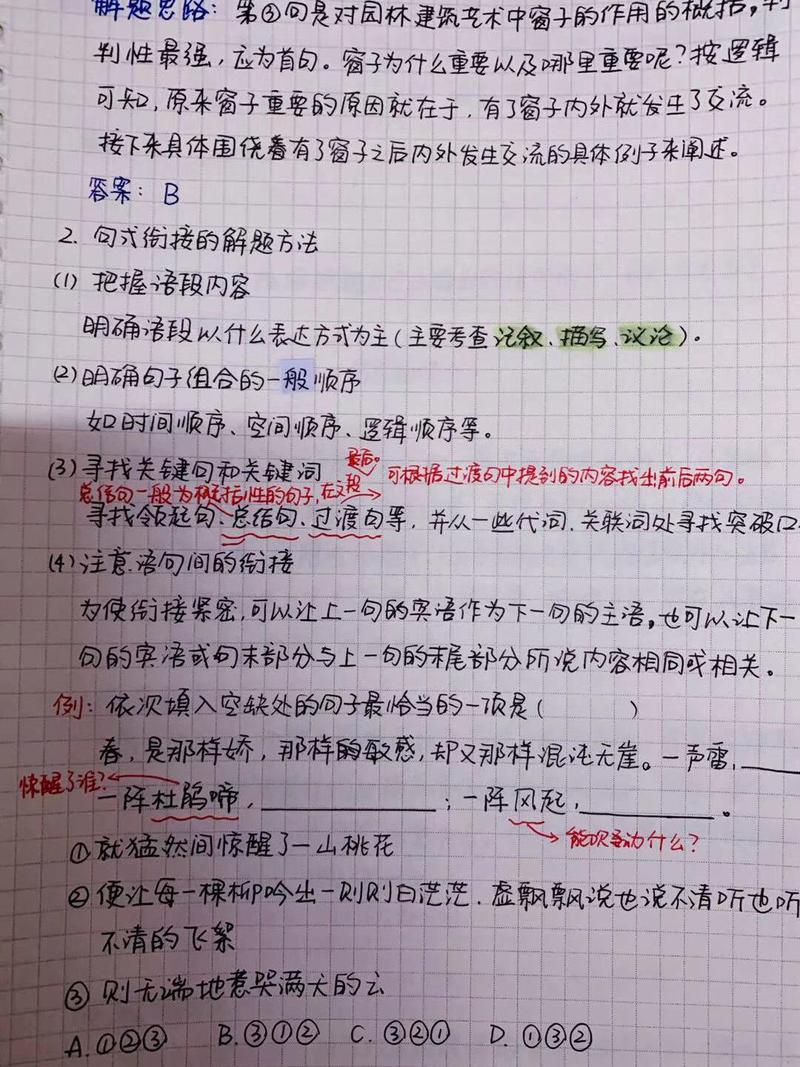 解题思路：第③句是对园林建筑艺术中窗子的作用的概括，判
判性最强，应为首句。窗子为什么重要以及哪里重要呢？按逻辑
可知，原来窗子重要的原因就在于，有了窗子内外就发生了交流。
接下来具体围绕着有了窗子之后内外发生交流的具体例子来阐述。
答案：B
2. 句式衔接的解题方法
(1) 把握语段内容
明确语段以什么表达方式为主(主要考查记叙、描写、议论)。
(2) 明确句子组合的一般顺序
如时间顺序、空间顺序、逻辑顺序等。
(3) 寻找关键句和关键词
最后。
可根据过渡句中提到的内容找出前后两句。
总结句一般为概括性的句子，在文段
寻找领起句、总结句、过渡句等，并从一些代词、关联词处寻找突破口
(4) 注意语句间的衔接
为使衔接紧密，可以让上一句的宾语作为下一句的主语，也可以让下一
句的宾语或句末部分与上一句的末尾部分所说内容相同或相关。
例：依次填入空缺处的句子最恰当的一项是( )
春，是那样娇，那样的敏感，却又那样混沌无崖。一声雷，______
惊醒了谁？
一阵杜鹃啼，______；一阵风起，______。
能吹动什么？
①就猛然间惊醒了一山桃花
②便让每一棵柳吟出一则则白茫茫、虚飘飘说也说不清听也听
不清的飞絮
③则无端地惹哭满天的云
A.①②③ B.③①② C.③②① D.①③②